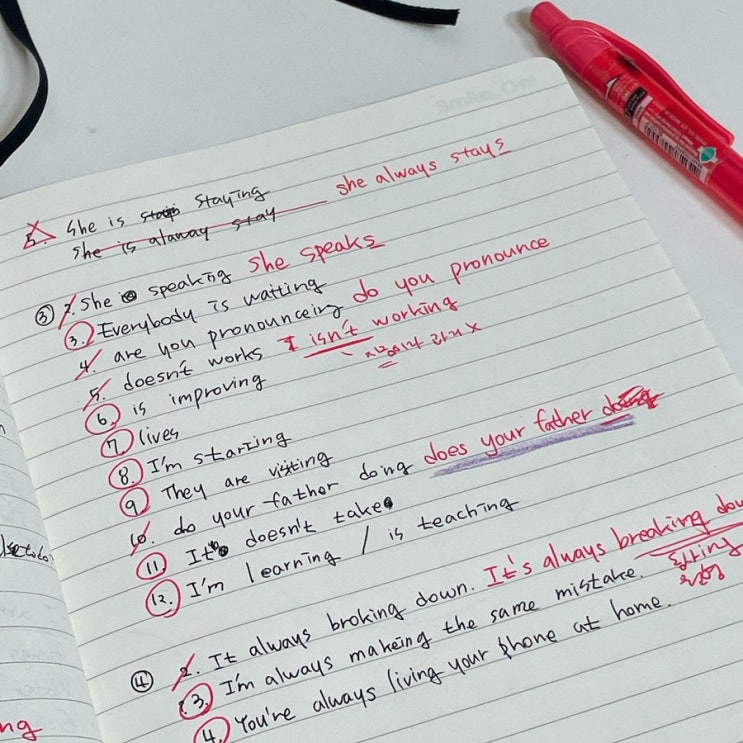 Smile, On!
5. She is staying she always stays
She is alaway stay
③ 2. She is speaking She speaks
3. Everybody is waiting
4. are you pronounceing do you pronounce
5. doesn't works I isn't working
6. is improving
7. lives
8. I'm starting
9. They are visiting
10. do your father doing does your father doing
11. It doesn't take
12. I'm learning / is teaching
④ 2. It always broking down. It's always breaking dow
3. I'm always makeing the same mistake.
4. You're always living your phone at home.
ng